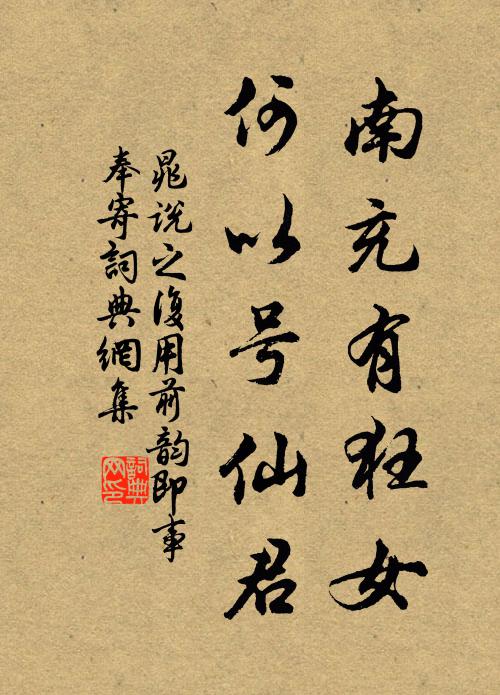 南充有狂女
何以号仙君
晁说之復用前韵即事
奉寄詞典網集
詞典网印